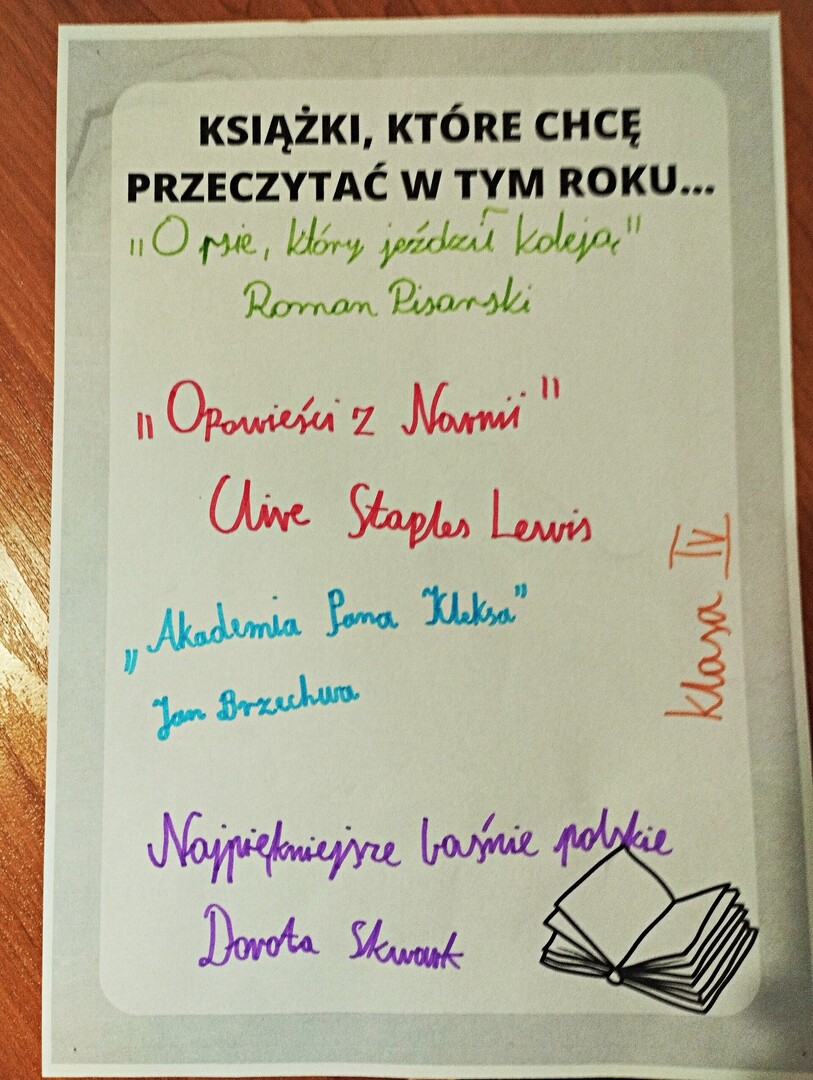 KSIĄŻKI, KTÓRE CHCĘ
PRZECZYTAĆ W TYM ROKU...
"O psie, który jeździł koleją"
Roman Pisarski
"Opowieści z Narnii"
Clive Staples Lewis
„Akademia Pana Kleksa"
Jan Brzechwa
Najpiękniejsze baśnie polskie
Dorota Skwark
klasa IV